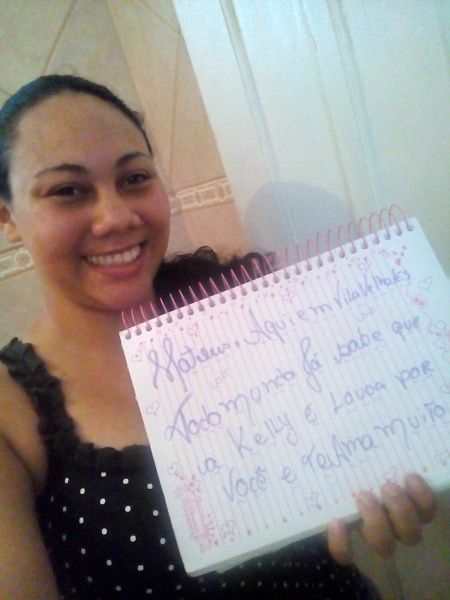 Mateus. Aqui em Vila Velha ES
Todo mundo já sabe que
a Kelly é Louca por
você e Te Ama muito